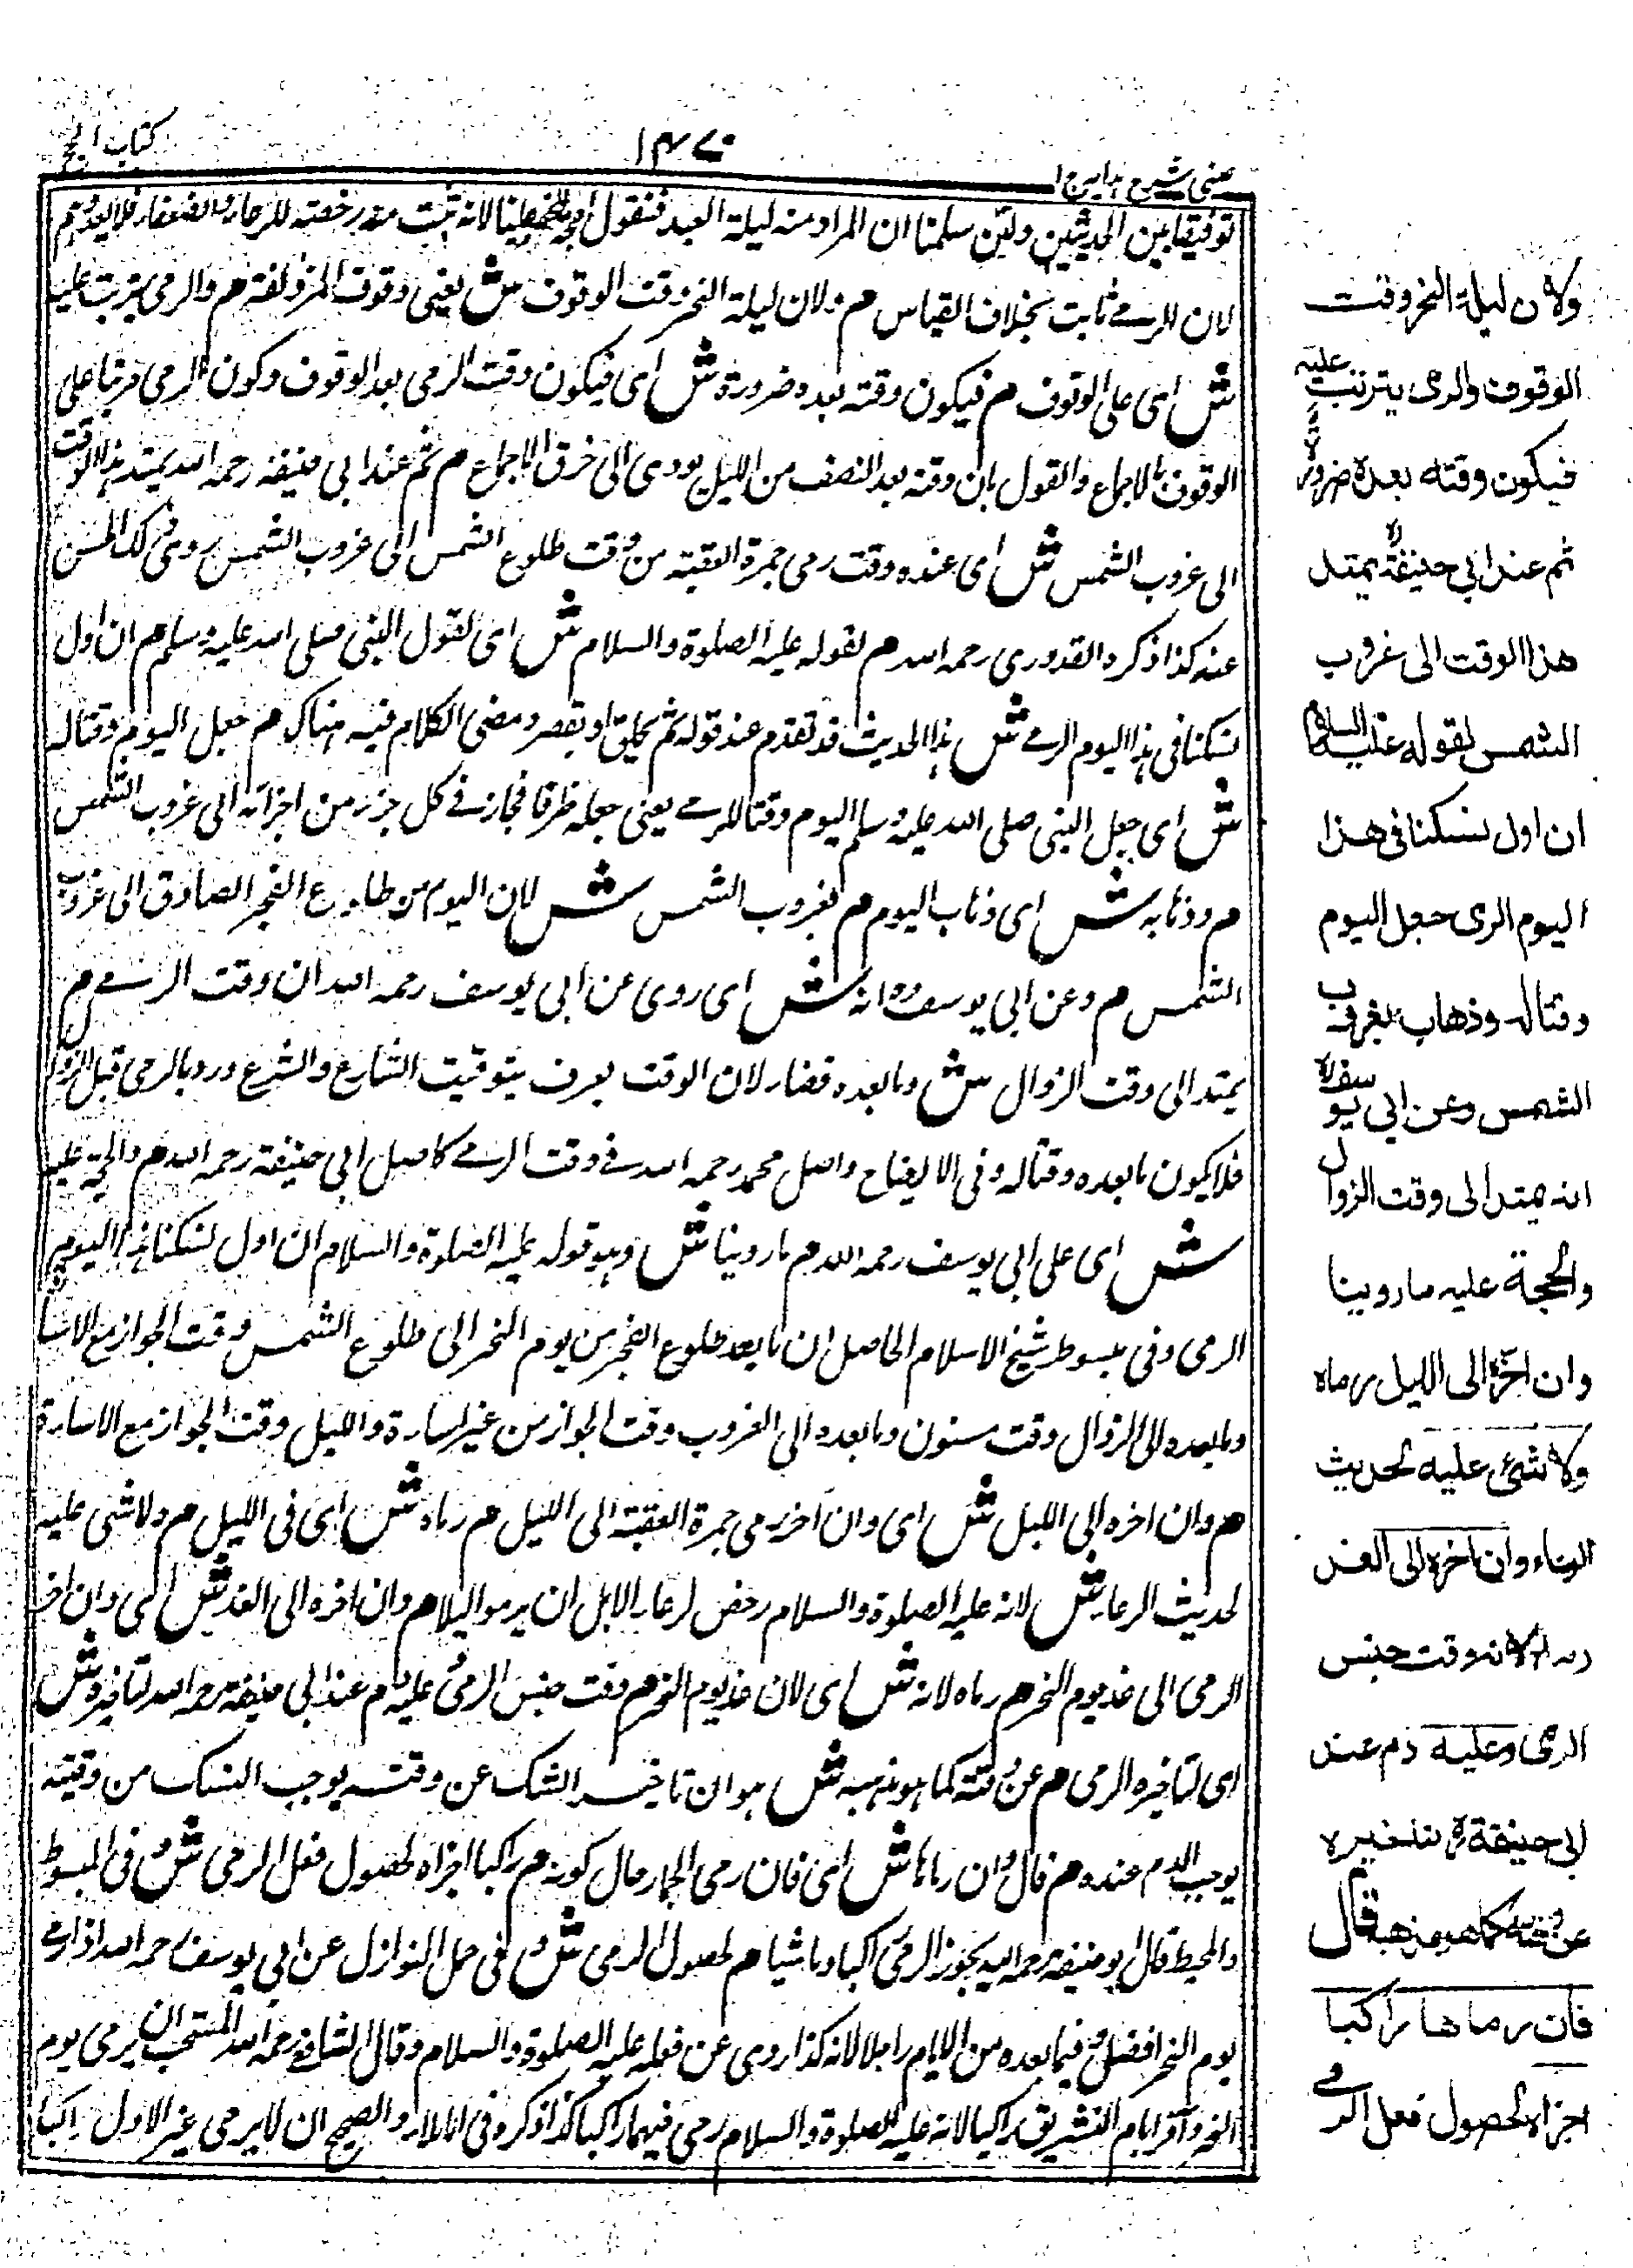 عینی شرح ہدایہ ج ۱
۱۴۷۰
کتاب الحج
توفیقا بین الحدیثین ولئن سلمنا ان المراد منه لیلة العید فنقول لانه ثبت رخصته للرعاء والضعفاء فلا یعدوهم
لان الرمے ثابت بخلاف القیاس م ولان لیلة النحر وقت الوقوف ش یعنی وقوف المزدلفة م والرمی یترتب علیه
ش ای علی الوقوف م فیکون وقته بعده ضرورة ش ای فیکون وقت الرمی بعد الوقوف وکون الرمی مرتبا علی
الوقوف بالاجماع والقول بان وقته بعد النصف من اللیل یودی الی خرق الاجماع م ثم عند ابی حنیفة رحمه الله یمتد هذا الوقت
الی غروب الشمس ش ای عنده وقت رمی جمرة العقبة من وقت طلوع الشمس الی غروب الشمس روی ذلک الحسن
عنه کذا ذکره القدوری رحمه الله م لقوله علیه الصلوة والسلام ش ای لقول النبی صلی الله علیه وسلم م ان اول
نسکنا فی هذا الیوم الرمے ش هذا الحدیث قد تقدم عند قوله ثم یحلق او یقصر ومضی الکلام فیه هناک م جعل الیوم وقتا له
ش ای جعل النبی صلی الله علیه وسلم الیوم وقتا للرمے یعنی جعله ظرفا فجاز فے کل جزء من اجزائه الی غروب الشمس
م وذهابه ش ای ذهاب الیوم م بغروب الشمس ش لان الیوم من طلوع الفجر الصادق الی غروب
الشمس م وعن ابی یوسف ره انه ش ای روی عن ابی یوسف رحمه الله ان وقت الرمے م
یمتد الی وقت الزوال ش وما بعده قضاء لان الوقت یعرف بتوقیت الشارع والشرع ورد بالرمی قبل الزوال
فلا یکون ما بعده وقتا له وفی الایضاح واصل محمد رحمه الله فے وقت الرمے کاصل ابی حنیفة رحمه الله م والحجة علیه
ش ای علی ابی یوسف رحمه الله م ما روینا ش وهو قوله علیه الصلوة والسلام ان اول نسکنا هذا الیوم
الرمی وفی مبسوط شیخ الاسلام الحاصل ان ما بعد طلوع الفجر من یوم النحر الی طلوع الشمس وقت الجواز مع الاساءة
وما بعده الی الزوال وقت مسنون وما بعده الی الغروب وقت الجواز من غیر اساءة واللیل وقت الجواز مع الاساءة
م وان اخره الی اللیل ش ای وان آخر رمی جمرة العقبة الی اللیل م رماه ش ای فی اللیل م ولا شی علیه
لحدیث الرعاء ش لانه علیه الصلوة والسلام رخص لرعاء الابل ان یرموا لیلا م وان اخره الی الغد ش ای وان اخر
الرمی الی غد یوم النحر م رماه لانه ش ای لان غد یوم النحر م وقت جنس الرمی وعلیه دم عند ابی حنیفة رحمه الله لتاخیره ش
ای لتاخیره الرمی م عن وقته کما هو مذهبه ش هو ان تاخیر النسک عن وقته یوجب النسک من وقیته
یوجب الدم عنده م قال وان رماها ش ای فان رمی الجمار حال کونه م راکبا اجزاه لحصول فعل الرمی ش و فی المبسوط
والمحیط قال ابو حنیفة رحمه الله یجوز الرمی راکبا وماشیا م لحصول الرمی ش و فی النوازل عن ابی یوسف رحمه الله اذا رمے
یوم النحر افضل وفیما بعده من الایام راجلا لانه کذا روی عن فعله علیه الصلوة والسلام وقال الشافعے رحمه الله المستحب ان یرمی یوم
النحر وآخر ایام التشریق راکبا لانه علیه الصلوة والسلام رمی فیهما راکبا کذا ذکر وفی الاملاء والصحیح ان لا یرمی غیر الاول راکبا
ولان لیلة النحر وقت
الوقوف والرمی یترتب علیه
فیکون وقته بعده ضرورة
ثم عند ابی حنیفة رح یمتد
هذا الوقت الی غروب
الشمس لقوله علیه السلام
ان اول نسکنا فی هذا
الیوم الرمی جعل الیوم
وقتا له وذهابه بغروب
الشمس وعن ابی یوسف رح
انه یمتد الی وقت الزوال
والحجة علیه ما روینا
وان اخره الی اللیل رماه
ولا شیء علیه لحدیث
الرعاء وان اخره الی الغد
رماه لانه وقت جنس
الرمی وعلیه دم عند
ابی حنیفة رح لتاخیره
عن وقته کما هو مذهبه قال
فان رماها راکبا
اجزاه لحصول فعل الرمی